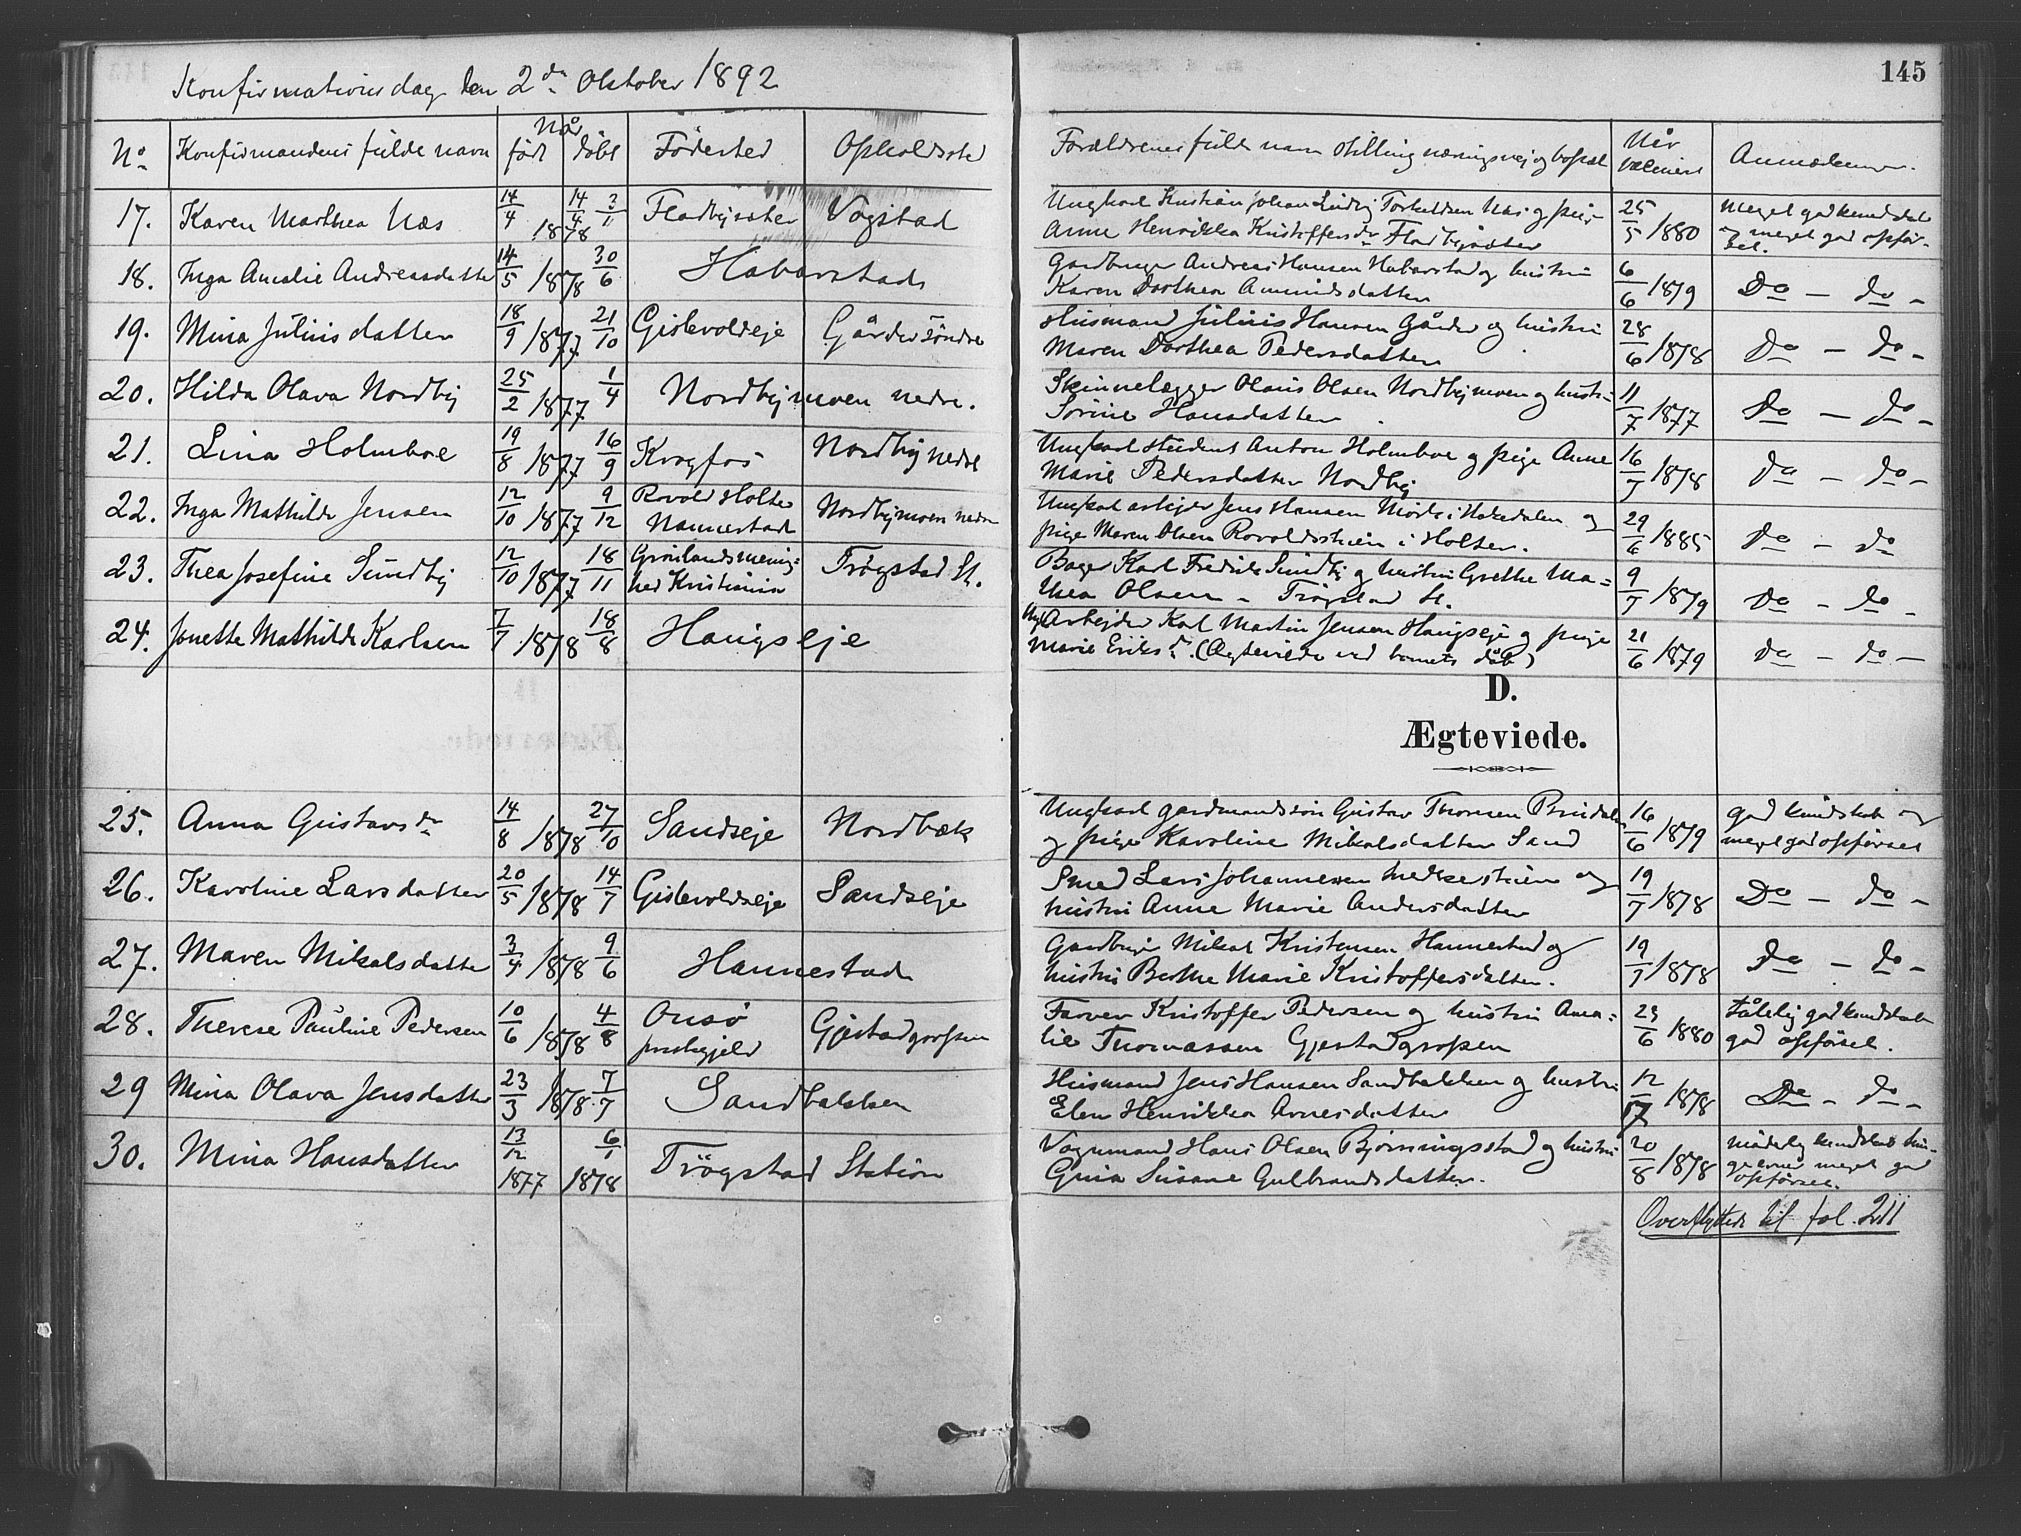 Konfirmationsdag den 2den Oktober 1892
145
No Konfirmandens fulde navn Når født døbt Fødested Opholdssted Forældrenes fulde navn stilling næringsvej og bopæl Når vaccineret Anmærkninger.
17. Karen Marthea Næs 14/4 1878 14/4 3/11 Fladbysæter Vogstad Ungkarl Kristian Johan Ludvig Torkildsen Næs og pige 25/5 1880 meget god kundskab
Anne Henrikka Kristoffersdr Fladbysæter og meget god opførsel.
18. Inga Amalie Andreasdatter 14/5 1878 30/6 Haberstad Gardbruger Andreas Hansen Haberstad og hustru 6/6 1879 Do - do -
Karen Dorthea Amundsdatter
19. Mina Juliusdatter 18/9 1877 21/10 Gislevoldeje Gårder søndre Husmand Julius Hansen Gårder og hustru 28/6 1878 Do - do -
Maren Dorthea Pedersdatter
20. Hilda Olava Nordby 25/2 1877 1/4 Nordbymoen nedre. Skinnelægger Olaus Olsen Nordbymoen og hustru 11/7 1877 Do - do -
Sørine Hansdatter.
21. Lina Holmboe 19/8 1877 16/9 Krogfos Nordby nedre Ungkarl student Anton Holmboe og pige Anne 16/7 1878 do - do -
Marie Pedersdatter Nordby
22. Inga Mathilde Jensen 12/10 1877 9/12 Rovold Holter Nannestad Nordbymoen nedre Ungkarl arbejder Jens Hansen i Hakedalen og 29/6 1885 Do - do
pige Maren Olsen Rovoldsstuen i Holter.
23. Thea Josefine Sundby 12/10 1877 18/11 Grønlands menighed Kristiania Trøgstad St. Bager Karl Fredrik Sundby og hustru Grethe Ma= 9/7 1879 Do - do -
thea Olsen - Trøgstad St.
24. Jonette Mathilde Karlsen 7/7 1878 18/8 Haugseje Ung. Arbejder Karl Martin Jensen Haugseje og pige 21/6 1879 Do - do -
Marie Eriksdr. (Ægteviede ved barnets dåb)
D.
Ægteviede.
25. Anna Gustavsdr 14/8 1878 27/10 Sandseje Nordbæk Ungkarl gardmandssøn Gustav Thorsen Brudalen 16/6 1879 god kundskab og
og pige Karoline Mikalsdatter Sand meget god opførsel
26. Karoline Larsdatter 20/5 1878 14/7 Gislevoldseje Sandseje Smed Lars Johannesen og 19/7 1878 Do - do -
hustru Anne Marie Andersdatter
27. Maren Mikalsdatter 3/4 1878 9/6 Hannestad Gardbruger Mikal Kristensen Hannestad og 19/7 1878 Do - do -
hustru Berthe Marie Kristoffersdatter.
28. Therese Pauline Pedersen 10/6 1878 4/8 Onsø prestegjeld Gjestadgropen Farver Kristoffer Pedersen og hustru Ama= 23/6 1880 tålelig god kundskab
lie Thomassen Gjestadgropen god opførsel.
29 Mina Olava Jensdatter 23/3 1878 7/7 Sandbakken Husmand Jens Hansen Sandbakken og hustru 12/7 1878 Do - do -
Elen Henrikka Arnesdatter
30. Mina Hansdatter 13/12 1877 6/1 1878 Trøgstad Station Vognmand Hans Olsen Bjørningsstad og hustru 20/8 1878 mådelig kundskab
Gina Susane Gulbrandsdatter. meget god opførsel.
Overflyttede til fol. 211